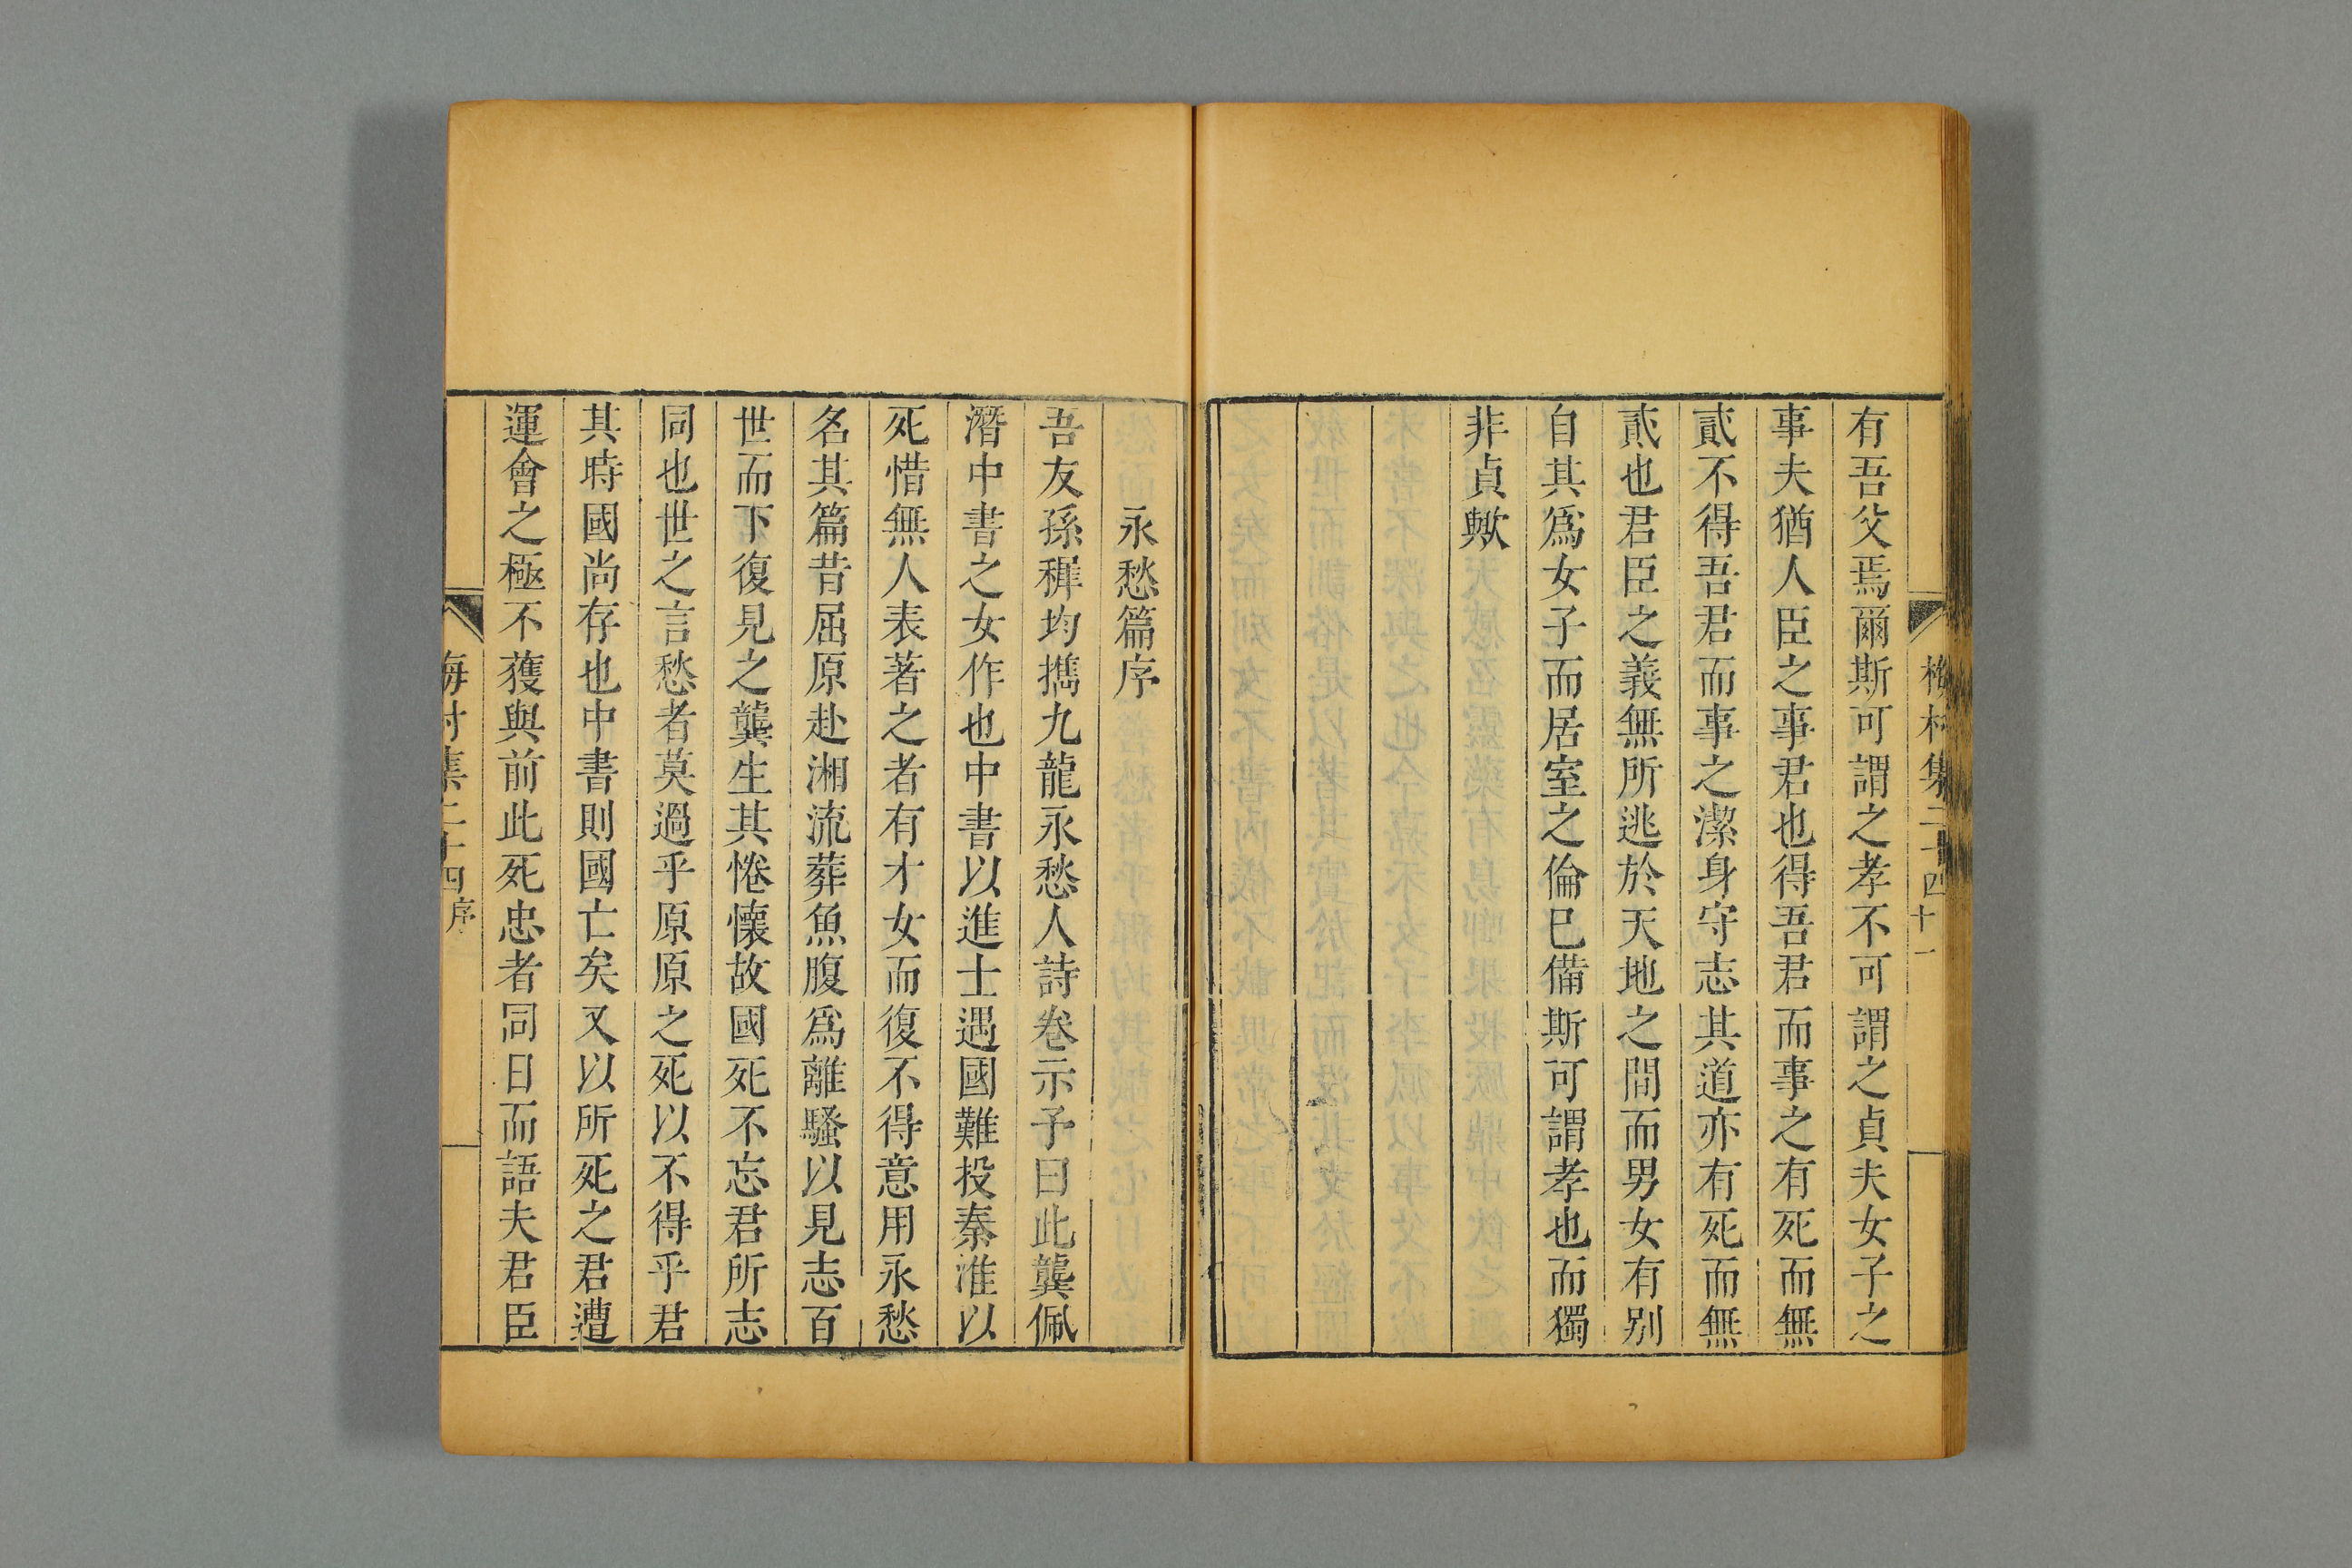 梅村集二十四 十一
有吾父焉爾斯可謂之孝不可謂之貞夫女子之
事夫猶人臣之事君也得吾君而事之有死而無
貳不得吾君而事之潔身守志其道亦有死而無
貳也君臣之義無所逃於天地之間而男女有別
自其爲女子而居室之倫已備斯可謂孝也而獨
非貞歟
永愁篇序
吾友孫穉均攜九龍永愁人詩卷示予曰此龔佩
潛中書之女作也中書以進士遇國難投秦淮以
死惜無人表著之者有才女而復不得意用永愁
名其篇昔屈原赴湘流葬魚腹爲離騷以見志百
世而下復見之龔生其惓懷故國死不忘君所志
同也世之言愁者莫過乎原原之死以不得乎君
其時國尚存也中書則國亡矣又以所死之君遭
運會之極不獲與前此死忠者同日而語夫君臣
梅村集二十四序